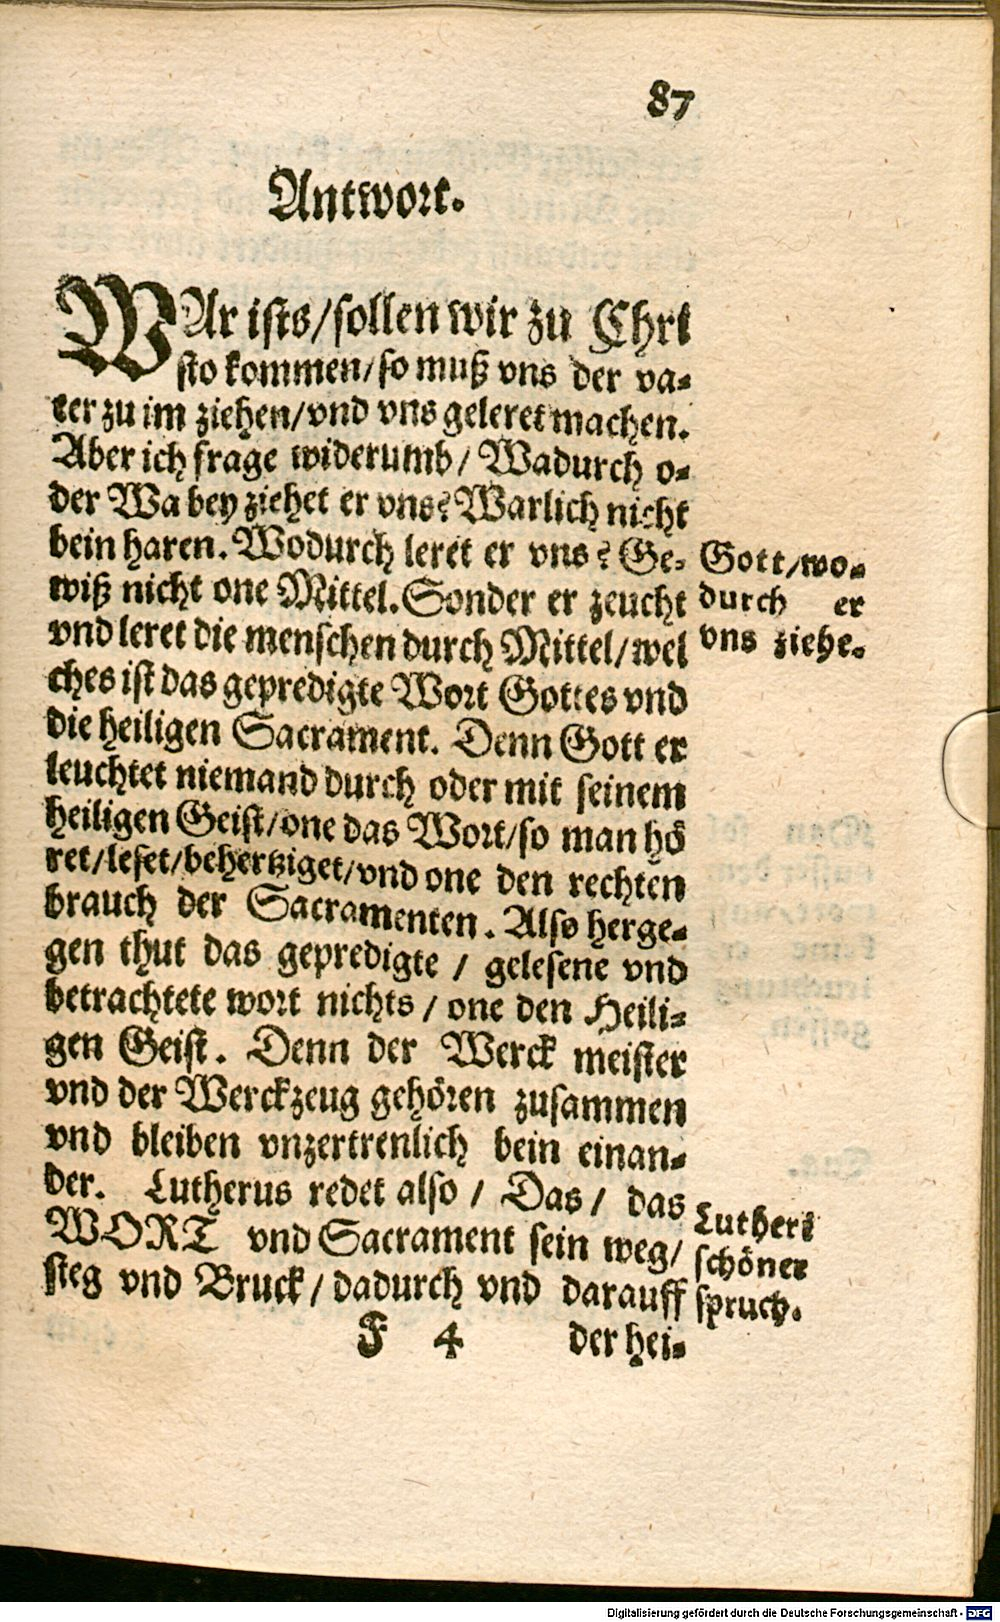 87
Antwort.
WAr ists/sollen wir zu Chri
sto kommen/so muß vns der va-
ter zu im ziehen/vnd vns geleret machen.
Aber ich frage widerumb/ Wadurch o-
der Wa bey ziehet er vns? Warlich nicht
bein haren. Wodurch leret er vns? Ge-
wiß nicht one Mittel. Sonder er zeucht
vnd leret die menschen durch Mittel/wel
ches ist das gepredigte Wort Gottes vnd
die heiligen Sacrament. Denn Gott er
leuchtet niemand durch oder mit seinem
heiligen Geist/one das Wort/so man hö
ret/leset/behertziget/vnd one den rechten
brauch der Sacramenten. Also herge-
gen thut das gepredigte / gelesene vnd
betrachtete wort nichts / one den Heili-
gen Geist. Denn der Werck meister
vnd der Werckzeug gehören zusammen
vnd bleiben vnzertrenlich bein einan-
der. Lutherus redet also / Das / das
WORT vnd Sacrament sein weg/
steg vnd Bruck / dadurch vnd darauff
F 4 der hei-
Gott/wo-
durch er
vns ziehe.
Lutheri
schöner
spruch.
Digitalisierung gefördert durch die Deutsche Forschungsgemeinschaft - DFG